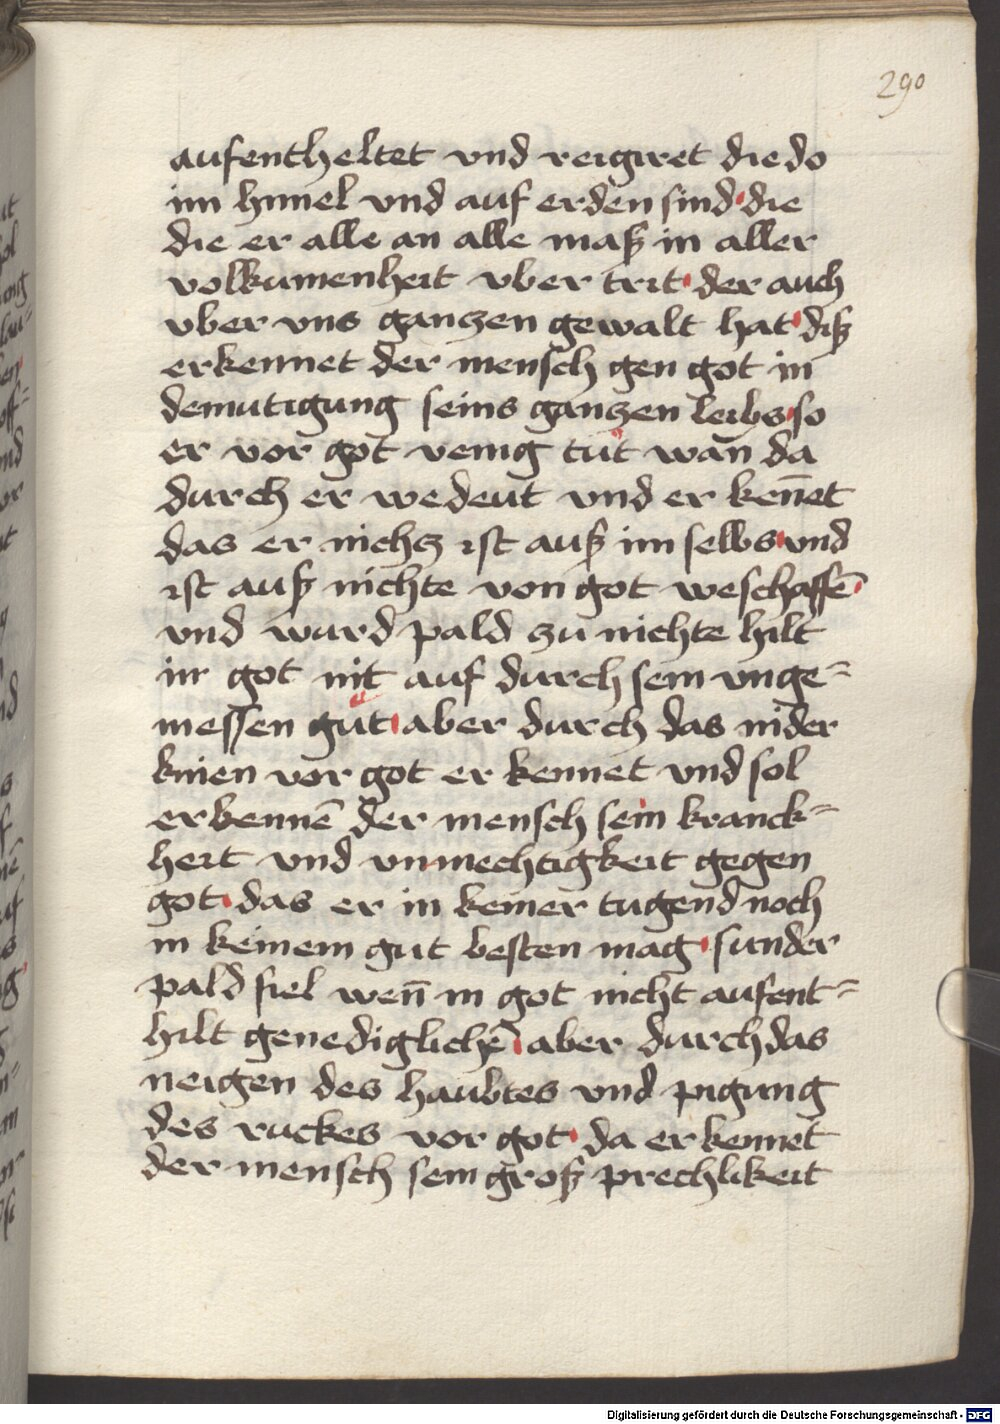 290
aufentheltet vnd reigiret die do
im himel vnd auf erden sind die
die er alle an alle maß in aller
volkumenheit vber trit der auch
vber vns ganczen gewalt hat diß
erkennet der mensch gen got in
demutigung seins ganczen leibs so
er vor got venig tut wan da
durch er wedeut vnd er ken̄et
das er nichcz ist auß im selbs vnd
ist auß nichte von got weschaffē
vnd wurd pald zu nichte hilt
in got nit auf durch sein vnge=
messen güt aber durch das nider
knien vor got er kennet vnd sol
erkennē der mensch sein kranck=
heit vnd vnmechtigkeit gegen
got das er in keiner tugend noch
in keinem gut besten mag sunder
pald fiel wen̄ in got nicht aufent=
hilt genediglichē aber durch das
neigen des haubtes vnd pigung
des ruckes vor got da er kennet
der mensch sein groß prechlikeit
Digitalisierung gefördert durch die Deutsche Forschungsgemeinschaft - DFG